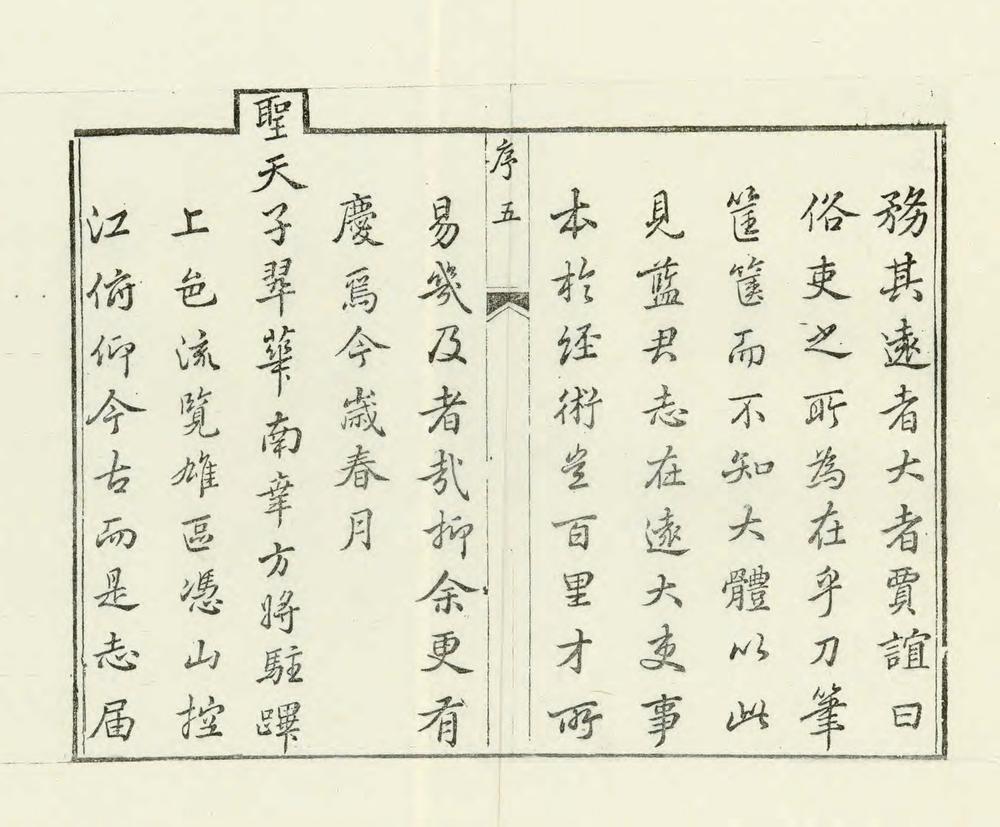 務其遠者大者賈誼曰
俗吏之所為在乎刀筆
筐篋而不知大體以此
見藍君志在遠大吏事
本於經術豈百里才所
序五
易幾及者哉抑余更有
慶焉今歲春月
聖天子翠華南幸方將駐蹕
上邑流覽雄區憑山控
江俯仰今古而是志届